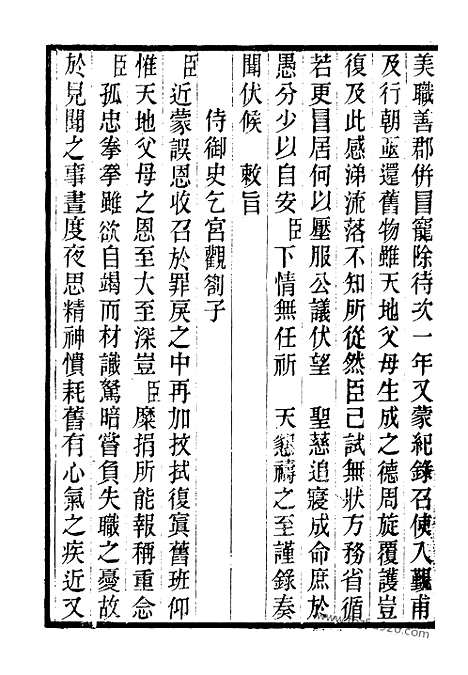 美職善郡併冒寵除待次一年又蒙紀錄召使入覲甫
及行朝亟還舊物雖天地父母生成之德周旋覆護豈
復及此感涕流落不知所從然臣已試無狀方務省循
若更冒居何以壓服公議伏望　聖慈追寢成命庶於
愚分少以自安臣下情無任祈　天懇禱之至謹錄奏
聞伏候　敕旨
侍御史乞宮觀劄子
臣近蒙誤恩收召於罪戾之中再加抆拭復寘舊班仰
惟天地父母之恩至大至深豈臣糜捐所能報稱重念
臣孤忠拳拳雖欲自竭而材識駑暗嘗負失職之憂故
於見聞之事晝度夜思精神憒耗舊有心氣之疾近又